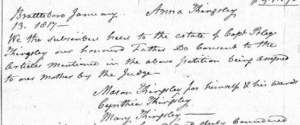 Brattleboro January Anna Thingsley
13. 1817—
We the subscribers heirs to the estate of Capt Peleg
Thingsley our honoured Father Do Concent to the
Articles mentioned in the above petition being assigned
to our mother by the Judge—
Mason Thingsley for himself & his wards
Cynthia Thingsley
Mary Thingsley—
duly Considered